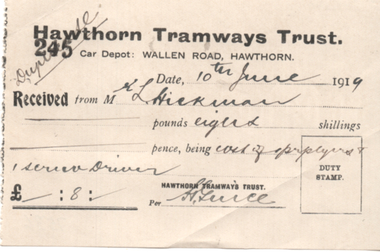 Hawthorn Tramways Trust.
Duplicate
245 Car Depot: WALLEN ROAD, HAWTHORN.
Date, 10th June 1919
Received from M L Hickman
pounds eight shillings
pence, being cost of &
1 screw Driver
DUTY
STAMP.
£ -:8:-
HAWTHORN TRAMWAYS TRUST.
Per